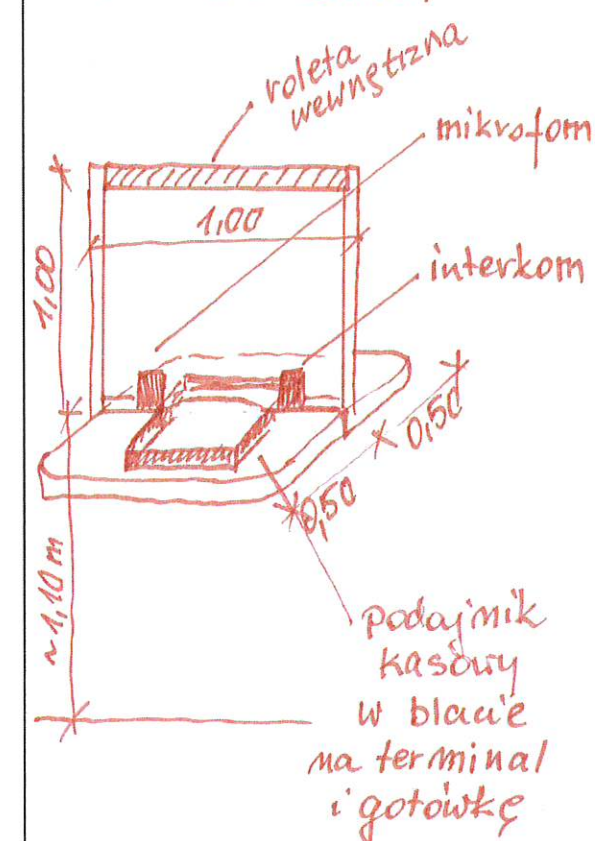 roleta
wewnętrzna
mikrofom
1,00
1,00
interkom
0,50
0,50
~1,10 m
podajnik
kasowy
w blacie
na terminal
i gotówkę